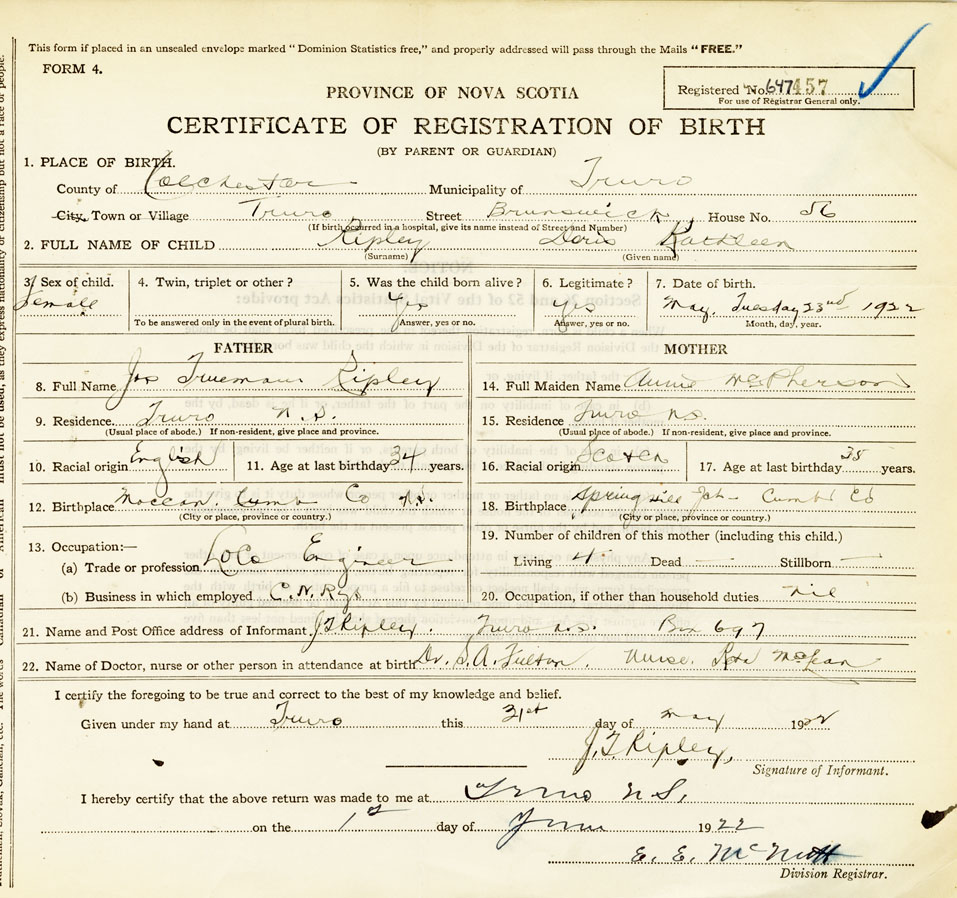 This form if placed in an unsealed envelope marked "Dominion Statistics free," and properly addressed will pass through the Mails "FREE."
FORM 4.
Registered No. 647457
For use of Registrar General only.
PROVINCE OF NOVA SCOTIA
CERTIFICATE OF REGISTRATION OF BIRTH
(BY PARENT OR GUARDIAN)
1. PLACE OF BIRTH.
County of Colchester Municipality of Truro
City, Town or Village Truro Street Brunswick House No. 56
(If birth occurred in a hospital, give its name instead of Street and Number)
2. FULL NAME OF CHILD Ripley Doris Kathleen
(Surname) (Given name)
3. Sex of child. 4. Twin, triplet or other? 5. Was the child born alive? 6. Legitimate? 7. Date of birth.
Female Yes Yes May, Tuesday 23nd 1922
To be answered only in the event of plural birth. Answer, yes or no. Answer, yes or no. Month, day, year.
FATHER MOTHER
8. Full Name Jos Trueman Ripley 14. Full Maiden Name Annie McPherson
9. Residence Truro N.S. 15. Residence Truro N.S.
(Usual place of abode.) If non-resident, give place and province. (Usual place of abode.) If non-resident, give place and province.
10. Racial origin English 11. Age at last birthday 34 years. 16. Racial origin Scotch 17. Age at last birthday 35 years.
12. Birthplace Maccan. Cumb Co N.S. 18. Birthplace Springhill Jct Cumbd Co
(City or place, province or country.) (City or place, province or country.)
13. Occupation:— 19. Number of children of this mother (including this child.)
(a) Trade or profession Loco Engineer Living 4 Dead — Stillborn —
(b) Business in which employed C.N. Rys 20. Occupation, if other than household duties nil
21. Name and Post Office address of Informant J T Ripley. Truro N.S. Box 697
22. Name of Doctor, nurse or other person in attendance at birth Dr. S. A. Fulton. Nurse. McLean
I certify the foregoing to be true and correct to the best of my knowledge and belief.
Given under my hand at Truro this 31st day of May 1922
J. T. Ripley,
Signature of Informant.
I hereby certify that the above return was made to me at Truro N S,
on the 1st day of June 1922
E. E. McNutt
Division Registrar.